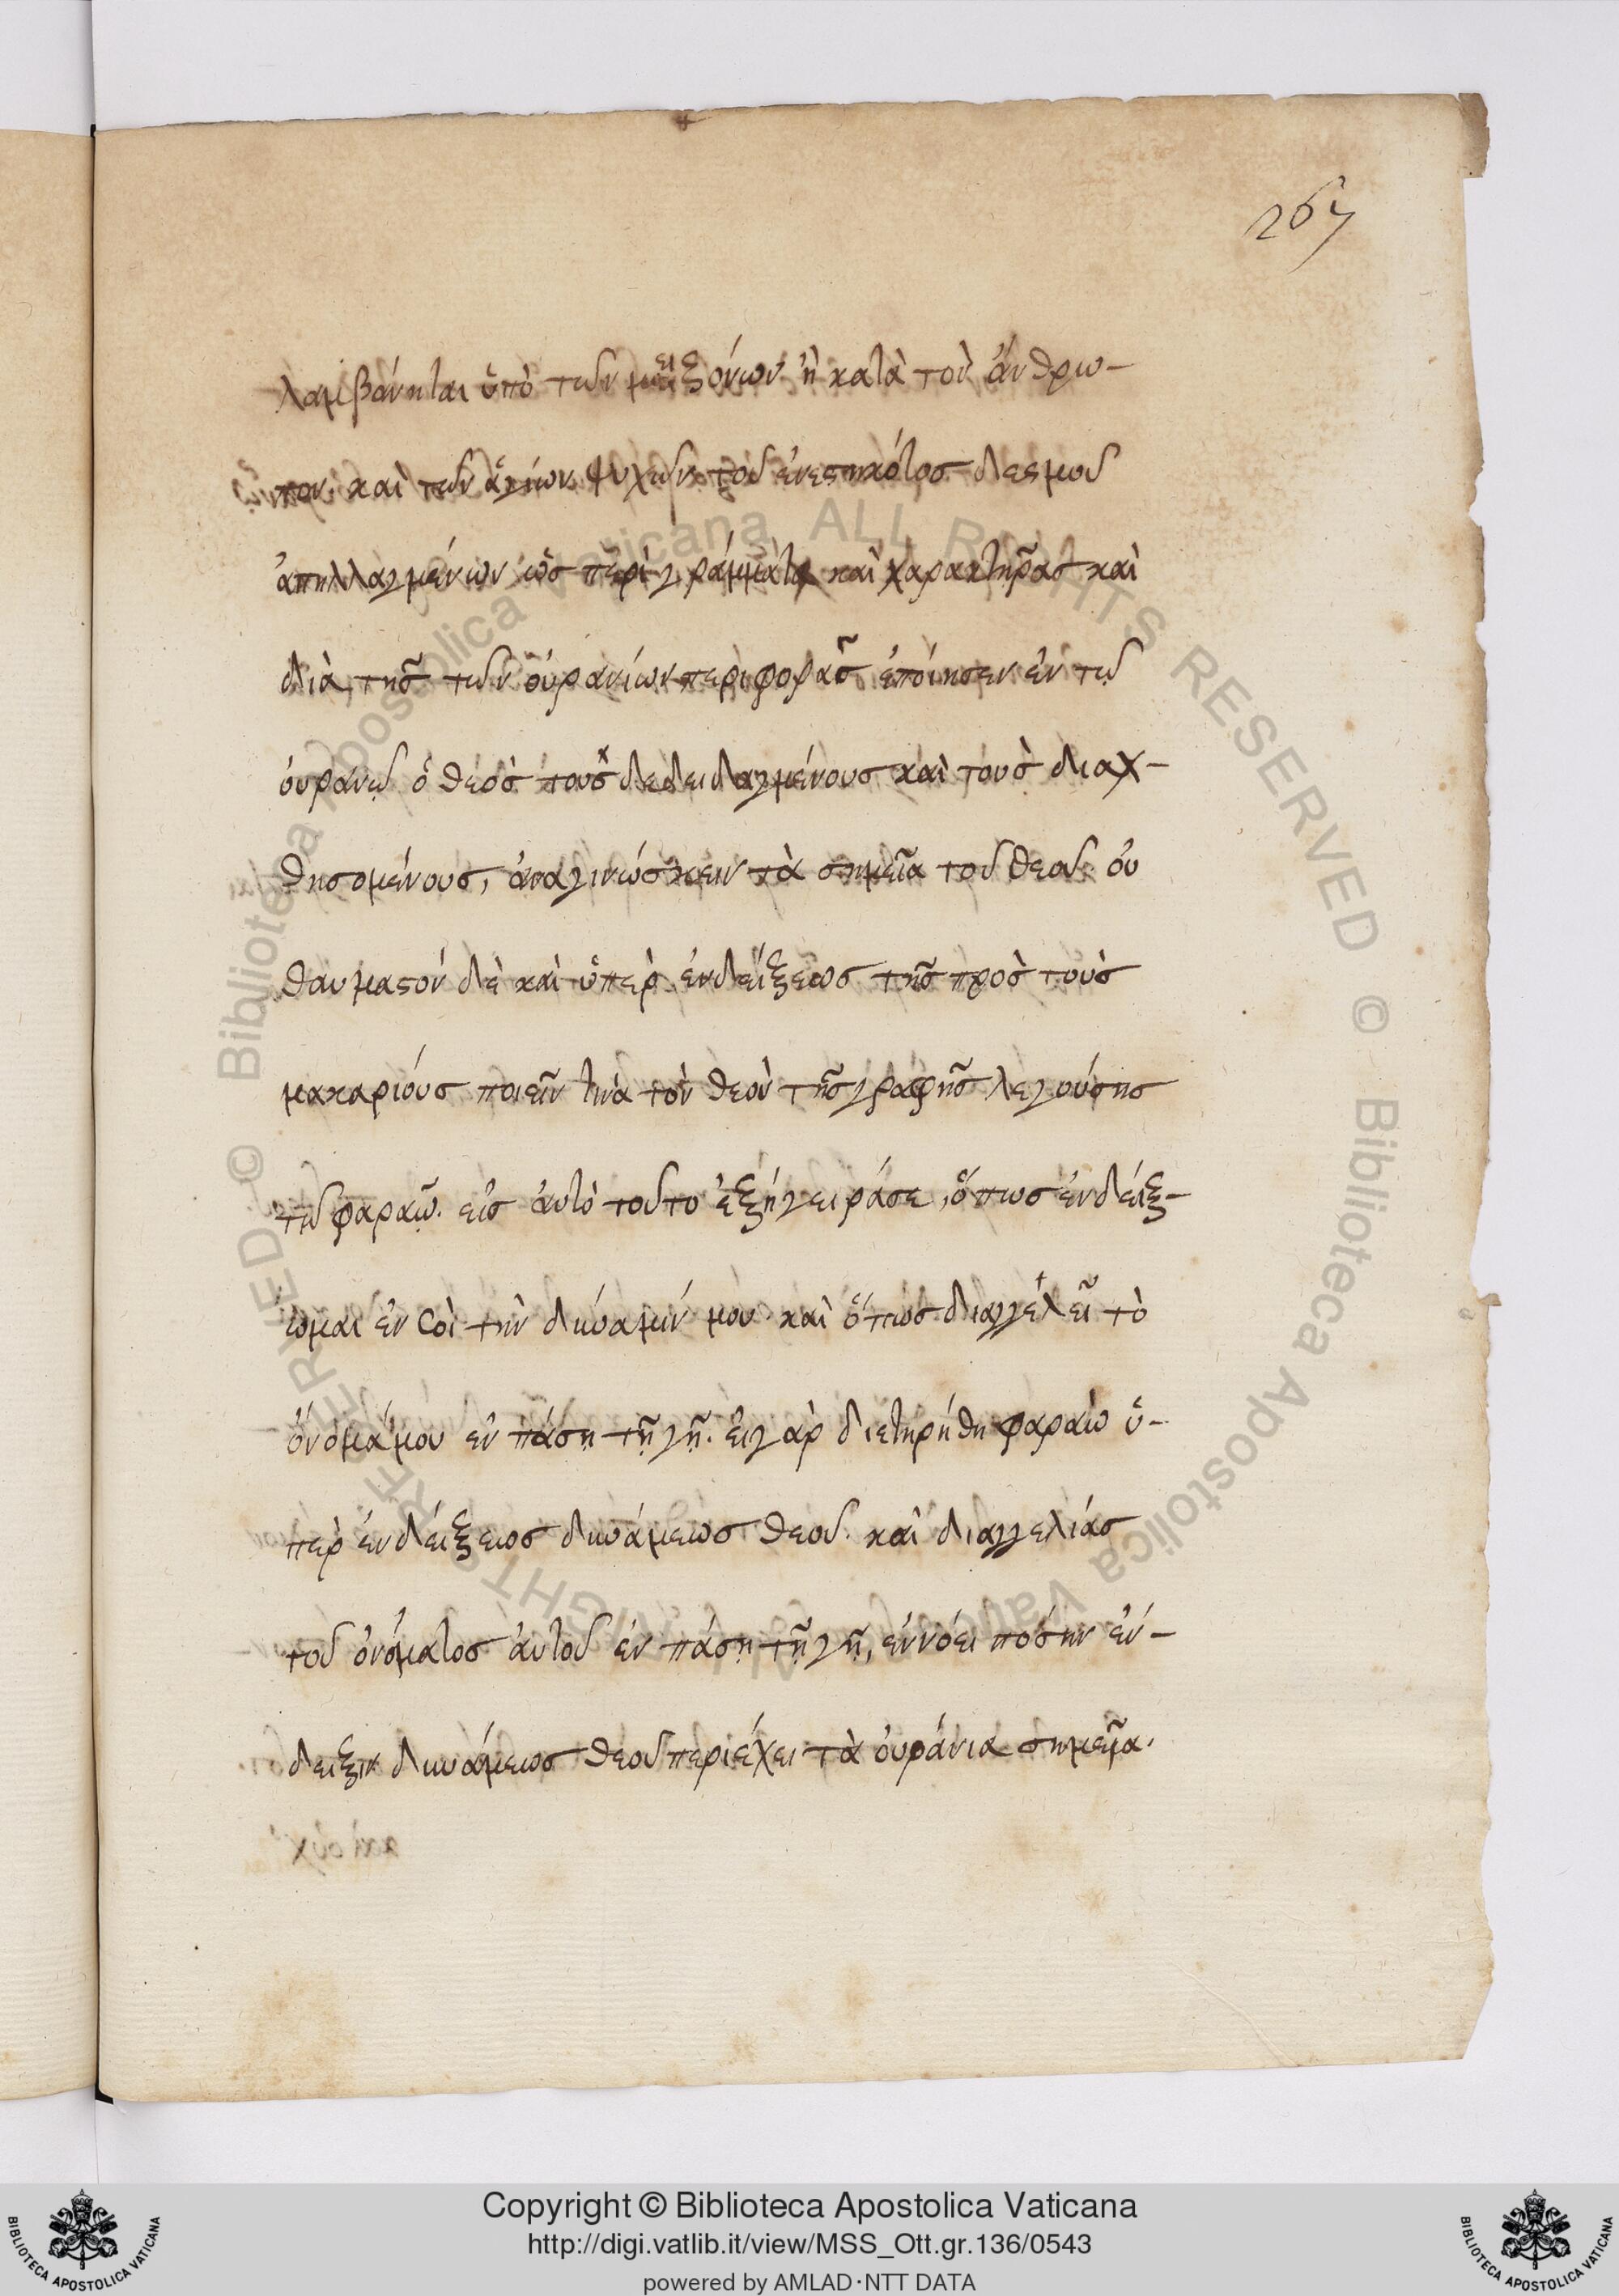 267
λαμβάνηται ὑπὸ τῶν μειζόνων ἢ κατὰ τὸν ἄνθρω-
πον. καὶ τῶν ἁγίων ψυχῶν τοῦ ἐνεστηκότος δεσμοῦ
ἀπηλλαγμένων ὡς περὶ γράμματα καὶ χαρακτῆρας καὶ
διὰ τῆς τῶν οὐρανίων περιφορᾶς ἐποίησεν ἐν τῷ
ὀυρανῷ ὁ θεὸς τοὺς δεδειδαγμένους καὶ τοὺς διαχ-
θησομένους, ἀναγινώσκειν τὰ σημεῖα τοῦ θεοῦ. ὀυ
θαυμαστόν δὲ καὶ ὑπὲρ ἐνδείξεως τῆς πρὸς τοὺς
μακαριόυς ποιεῖν τινὰ τὸν θεὸν τῆς γραφῆς λεγούσης
τῷ φαραῶ. εἰς ἀυτὸ τοῦτο ἐξήγειράσε, ὅπως ἐνδείξ-
ωμαι ἐν σοὶ τὴν δύναμιν μου. καὶ ὅπως διαγγέλεῖ τὸ
ὄνομά μου ἐν πάσῃ τῇ γῇ. εἰ γὰρ διετηρήθη φαραὼ ὑ-
πὲρ ἐνδείξεως δυνάμεως θεοῦ. καὶ διαγγελιάς
τοῦ ὀνόματος ἀυτοῦ ἐν πάσῃ τῇ γῇ, ἐννόει πόσην ἐν-
δειξιν δυνάμεως θεοῦ περιέχει τὰ ὀυράνια σημεῖα.
Copyright © Biblioteca Apostolica Vaticana
http://digi.vatlib.it/view/MSS_Ott.gr.136/0543
powered by AMLAD·NTT DATA
BIBLIOTECA APOSTOLICA VATICANA
BIBLIOTECA APOSTOLICA VATICANA